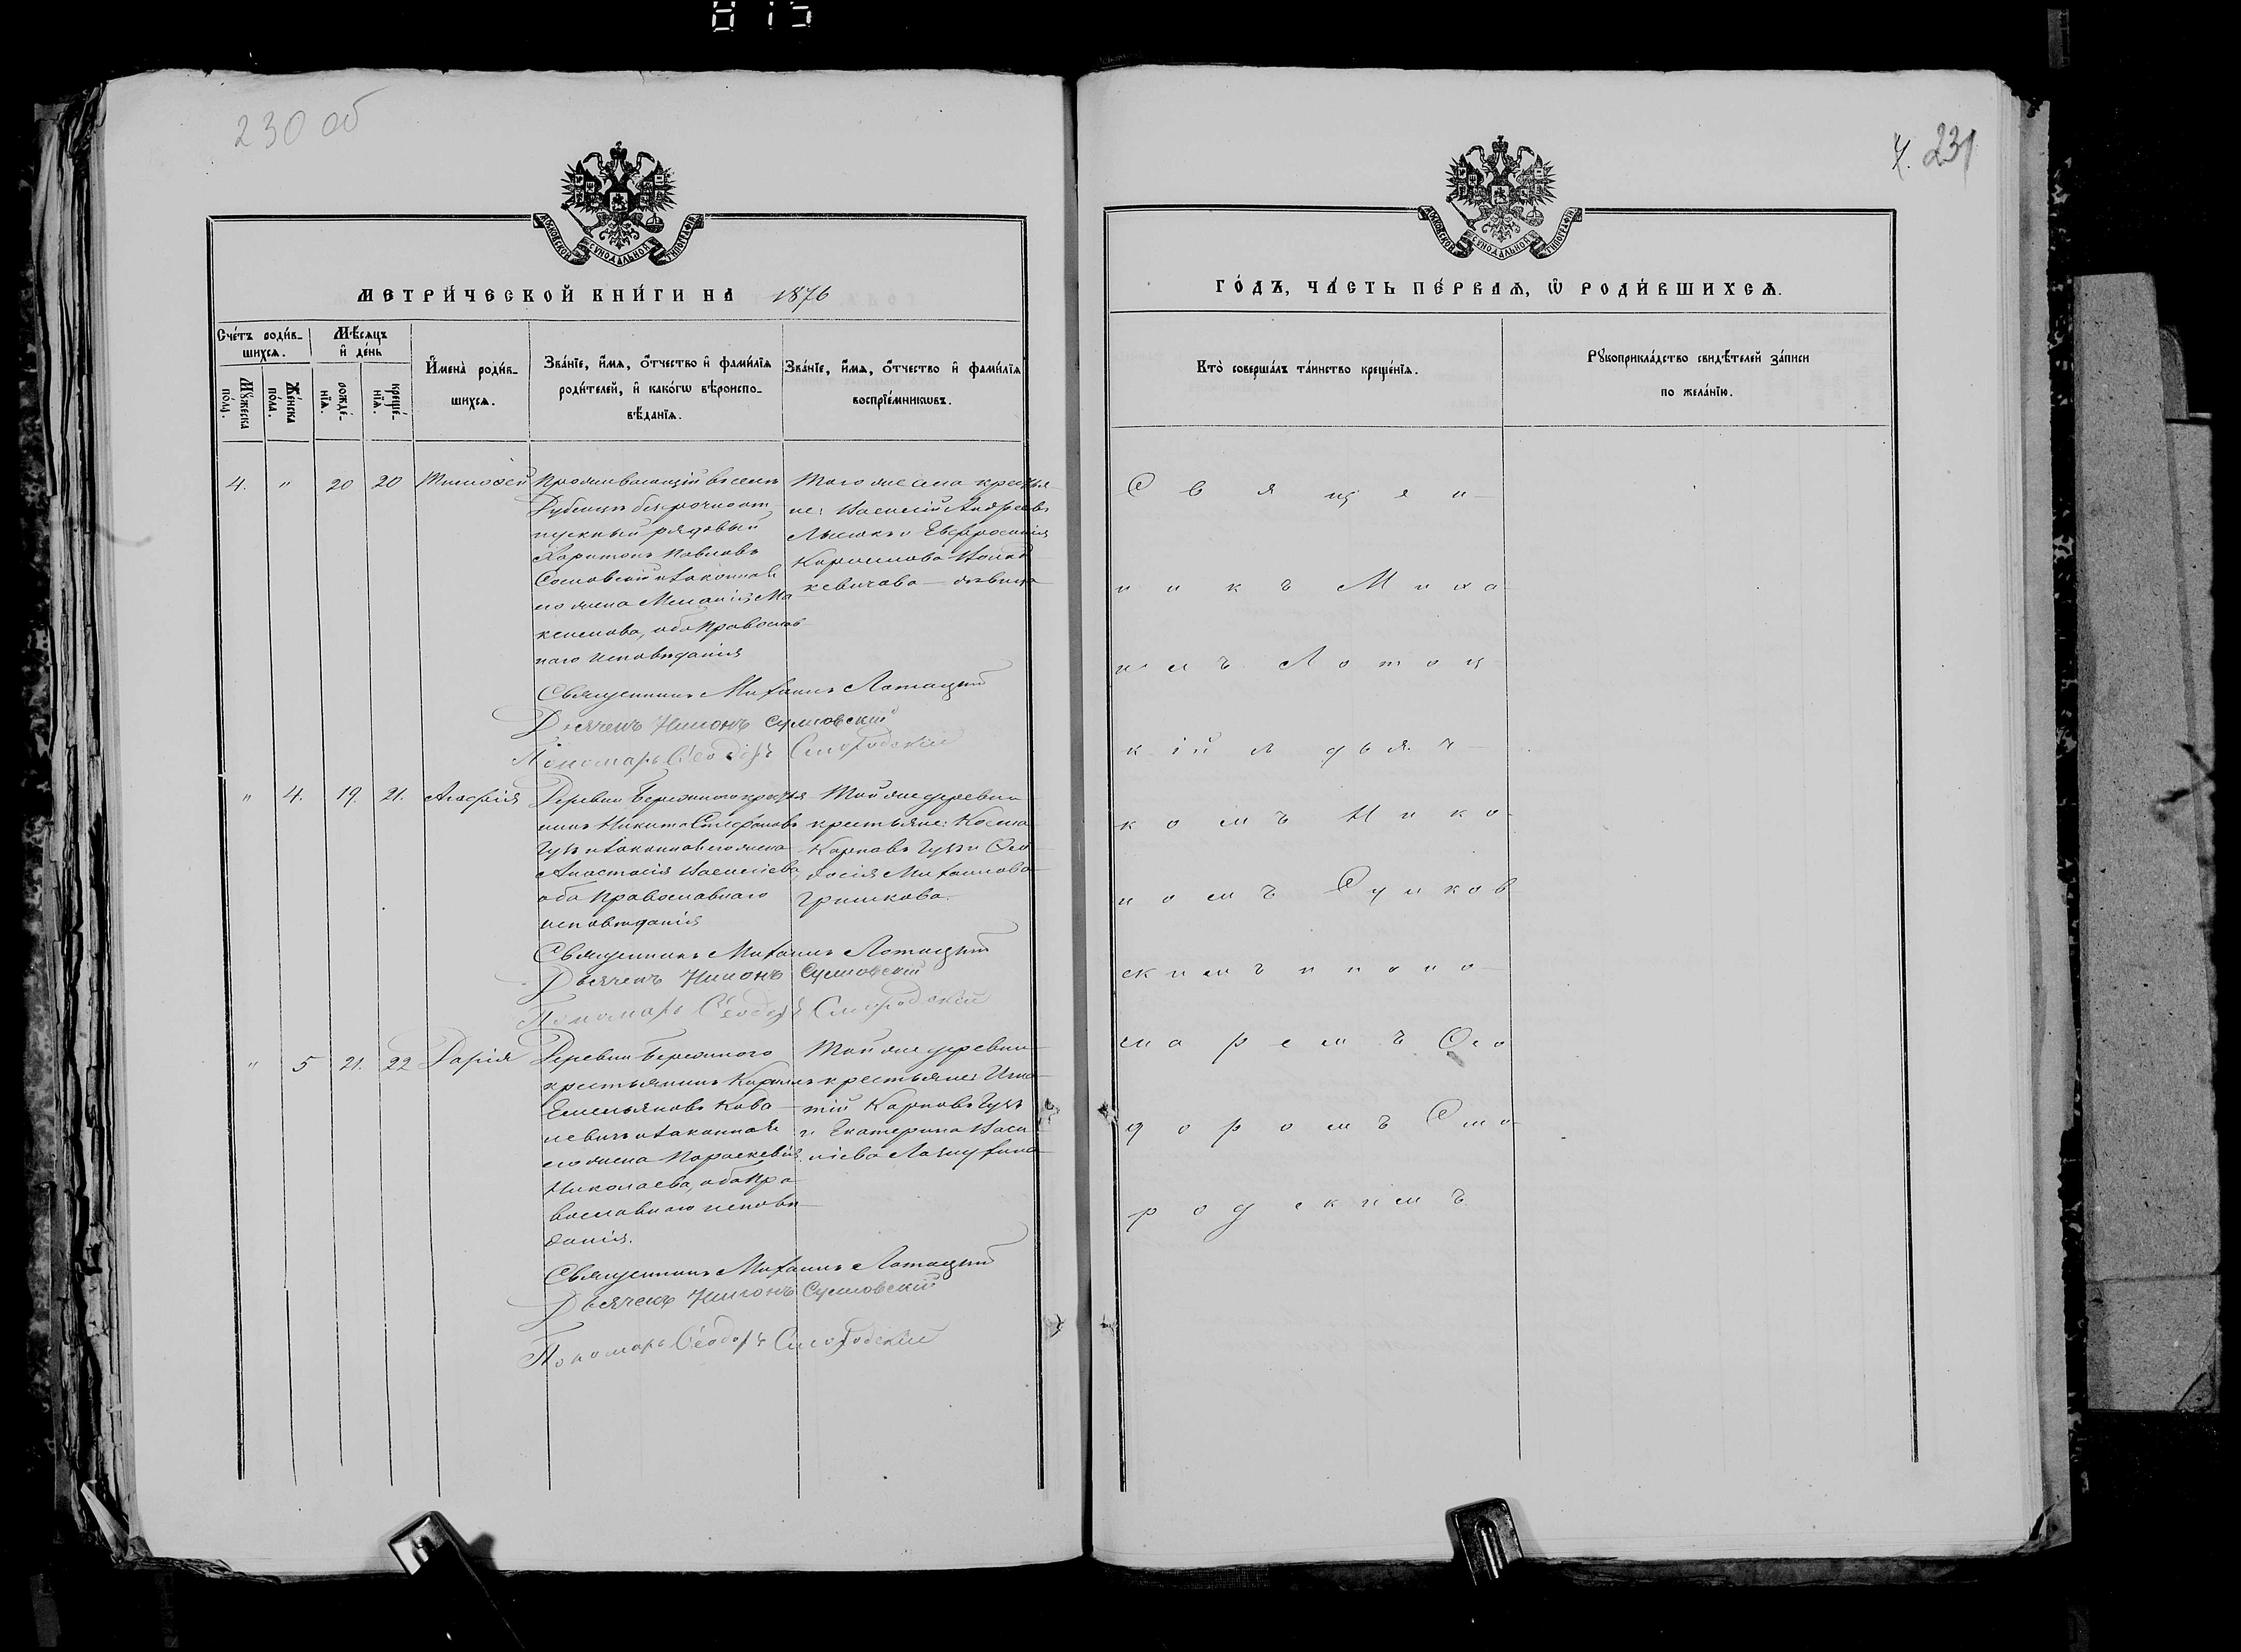 815
230 об
МОСКОВСКОЙ СѴНОДАЛЬНОЙ ТИПОГРАФІИ
МЕТРИ́ЧЕСКОЙ КНИ́ГИ НА 1876
Сче́тъ роди́в-
шихсѧ.
Мѣ́сѧцъ
и҆ де́нь
Мꙋ́жеска
по́лꙋ.
Же́нска
по́ла.
рожде́-
нїѧ.
креще́-
нїѧ.
И҆мена̀ роди́в-
шихсѧ.
Зва́нїе, и҆́мѧ, ѻ҆́тчество и҆ фами́лїѧ
роди́телей, и҆ како́гѡ вѣроиспо-
вѣ́данїѧ.
Зва́нїе, и҆́мѧ, ѻ҆́тчество и҆ фами́лїѧ
воспрїе́мникѡвъ.
4. " 20 20 Тимоѳей
Проживающій въ селѣ
безсрочноот-
пускный рядовый
Харитонъ Павловъ
и законная
его жена Меланія Ма
ксимова, оба православ-
наго исповѣданія
Того же села крестья-
не: Василій Андреевъ
и Евфросинія
дѣвица
Священникъ Михаилъ Лотоцкій
Дьячекъ
Пономарь Ѳеодоръ Смородскій
" 4. 19. 21. Агафія
Деревни Бережного крестья
нинъ Никита Стефановъ
Гузъ и законная его жена
Анастасія Васильева,
оба православнаго
исповѣданія
Той же деревни
крестьяне: Косма
Карповъ Гузъ и Ѳео
досія Михаилова
Гришкова.
Священникъ Михаилъ Лотоцкій
Дьячекъ
Пономарь Ѳеодоръ Смородскій
" 5 21. 22 Дарія
Деревни Бережного
крестьянинъ Кириллъ
Емельяновъ Кова
левичъ и законная
его жена Параскевія
Николаева, оба пра
вославнаго исповѣ
данія.
Той же деревни
крестьяне: Игна
тій Карповъ Гузъ
и Екатерина Васи
льева
Священникъ Михаилъ Лотоцкій
Дьячекъ
Пономарь Ѳеодоръ Смородскій
231
МОСКОВСКОЙ СѴНОДАЛЬНОЙ ТИПОГРАФІИ
ГО́ДЪ, ЧА́СТЬ ПЕ́РВАѦ, Ѡ҆ РОДИ́ВШИХСѦ.
Кто̀ соверша́лъ та́инство креще́нїѧ.
Рꙋкоприкла́дство свидѣ́телей за́писи
по жела́нїю.
Священ-
никъ Миха-
илъ Лотоц-
кій
комъ
номъ
скимъ и поно-
маремъ Ѳео
доромъ Смо-
родскимъ